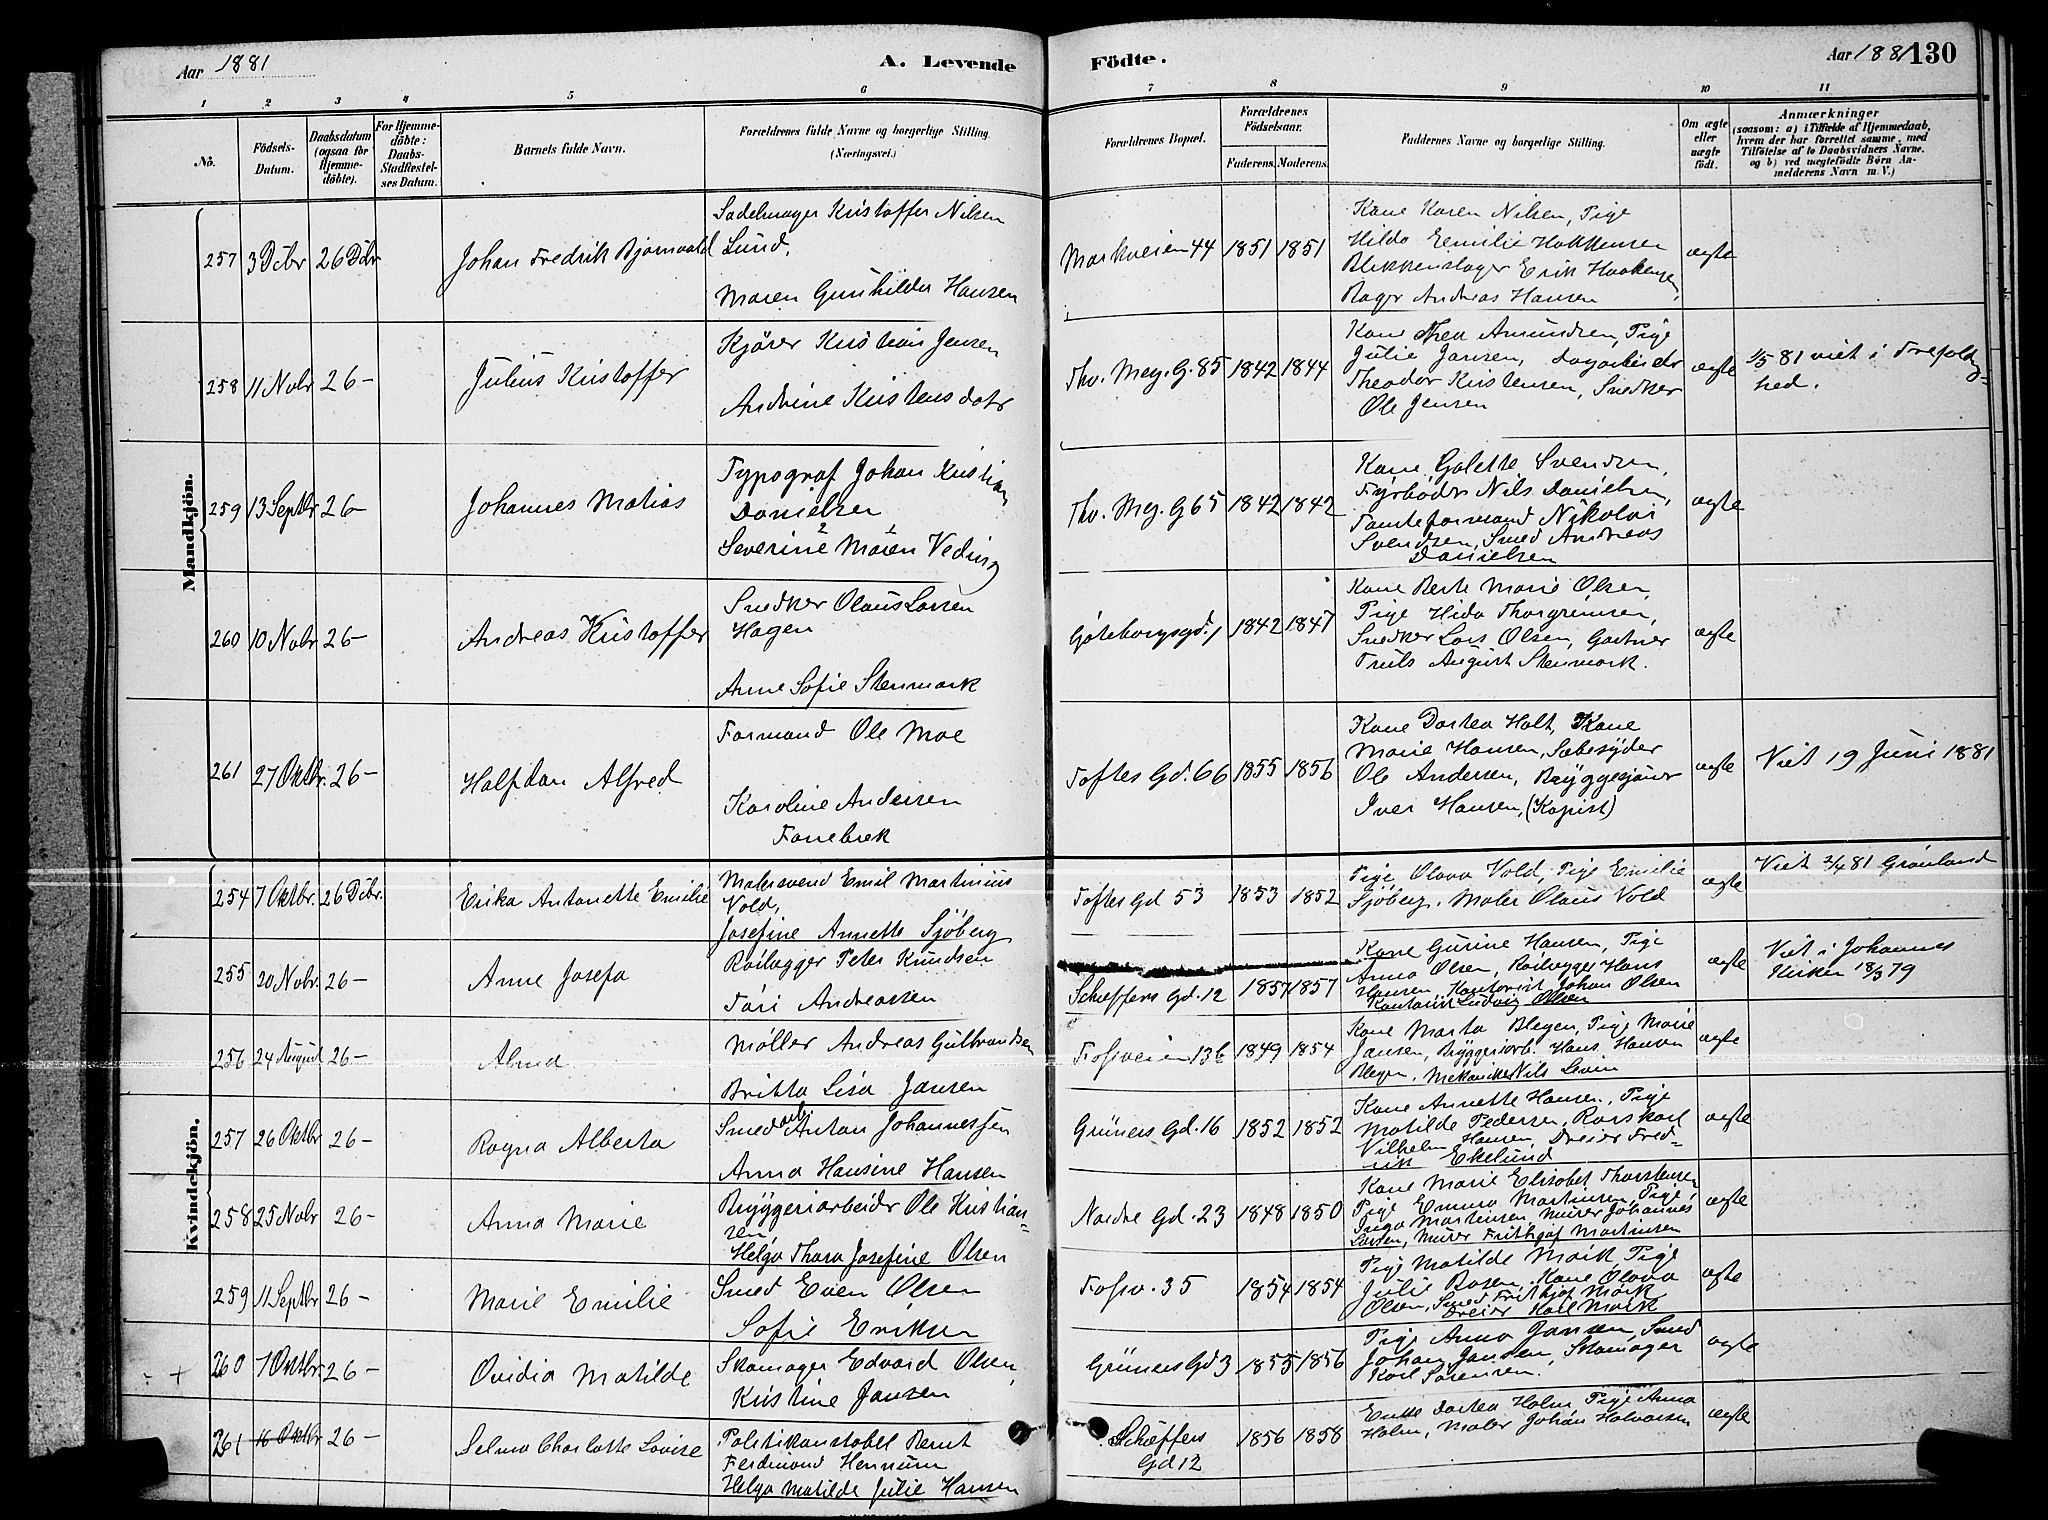 Aar 1881
A. Levende
Födte.
Aar 1881
130
1 2 3 4 5 6 7 8 9 10 11
Nö.
Födsels-
Datum.
Daabsdatum
(ogsaa for
Hjemme-
döbte).
For Hjemme-
döbte:
Daabs-
Stadfæstel-
ses Datum.
Barnets fulde Navn.
Forældrenes fulde Navne og borgerlige Stilling.
(Næringsvei.)
Forældrenes Bopæl.
Forældrenes
Födselsaar.
Faderens. Moderens.
Faddernes Navne og borgerlige Stilling.
Om ægte
eller
uægte
födt.
Anmærkninger
(saasom: a) i Tilfælde af Hjemmedaab,
hvem der har forrettet samme, med
Tilföielse af to Daabsvidners Navne.
og b) ved uægtefödte Börn An-
melderens Navn m.V.)
Mandkjön.
257 3 Dcbr 26 Dcbr
Johan Fredrik Bjornvald
Sadelmager Kristoffer Nilsen
Lund,
Maren Gunhilda Hansen
Markveien 44 1851 1851
Kone Karen Nilsen, Pige
Hilda Eemilie Hakkensen
Blikkenslager Erik Haakensen,
Bager Andreas Hansen
ægte
258 11 Nobr 26 -
Julius Kristoffer
Kjörer Kristian Jensen
Andrine Kristensdatr
Thv. Mey. G. 85 1842 1844
Kone Thea Amundsen, Pige
Julie Jansen, Dagarbeider
Theodor Kristensen, Snedker
Ole Jensen
ægte
1/5 81 viet i Trefoldig-
hed.
259 13 Septbr 26 -
Johannes Matias
Typograf Johan Kristian
Danielsen
Severine Maren Veding
Thv. Mey. G 65 1842 1842
Kone Galette Svendsen,
Fyrböder Nils Danielsen,
Tomteformand Nikolai
Svendsen, Smed Andreas
Danielsen
ægte
260 10 Nobr 26 -
Andreas Kristoffer
Snedker Olaus Larsen
Hagen
Anne Sofie Stenmark
Göteborgsgd. 1 1842 1847
Kone Berte Marie Olsen,
Pige Hida Thorgrimsen,
Snedker Lars Olsen, Gartner
Truls August Stenmark.
ægte
261 27 Oktbr. 26 -
Halfdan Alfred
Formand Ole Moe
Karoline Andersen
Fannebæk
Toftes Gd. 66 1855 1856
Kone Dortea Holt, Kone
Marie Hansen, Sæbesyder
Ole Andersen, Bryggesjauer
Iver Hansen, (Kopist)
ægte
Viet 19 Juni 1881
Kvindekjön.
254 7 Oktbr. 26 Dcbr.
Erika Antonette Emilie
Malersvend Emil Martinius
Vold,
Josefine Annette Sjöberg
Toftes Gd 53 1853 1852
Pige Olava Vold, Pige Emilie
Sjöberg, Maler Olaus Vold
ægte
Viet 2/4 81 Grönland
255 20 Nobr. 26 -
Anne Josefa
Rörlægger Peter Knudsen
Tari Andreassen
Schæffers Gd. 12 1857 1857
Kone Gurine Hansen, Pige
Anna Olsen, Rörlægger Hans
Hansen, Kontorist Johan Olsen
Kontorist Ludvig Olsen
ægte
Viet i Johannes
Kirken 18/3 79
256 24 August 26 -
Alma
Möller Andreas Gulbrandsen
Britta Lisa Jansen
Fossveien 13b 1849 1854
Kone Marta Blegen, Pige Marie
Jansen, Bryggeriarb. Hans Hansen
Blegen, Mekaniker Nils
ægte
257 26 Oktbr 26 -
Ragna Alberta
Smed Anton Johannessen
Anna Hansine Hansen
Grüners Gd. 16 1852 1852
Kone Annette Hansen, Pige
Matilde Pedersen, Rorskarl
Vilhelm Hansen, Dreier Fred-
rik Ekelund
ægte
258 25 Nobr 26 -
Anna Marie
Bryggeriarbeider Ole Kristian-
sen,
Helga Thora Josefine Olsen
Nordre Gd. 23 1848 1850
Kone Marie Elisabet Thorstensen
Pige Emma Martinsen, Pige
Inga Martinsen, Murer Johannes
Larsen, Murer Frithjof Martinsen
ægte
259 11 Septbr 26 -
Marie Emilie
Smed Even Olsen
Sofie Eriksen
Fossv. 35 1854 1854
Pige Matilde Mork, Pige
Julie Rosen, Kone Olava
Olsen, Smed Frithjof Mork
Dreier Karl Mork
ægte
÷ + 260 7 Oktbr. 26 -
Ovidia Matilde
Skomager Edvard Olsen,
Kristine Jansen
Grüners Gd 3 1855 1856
Pige Anna Jansen, Smed
Johan Jansen, Skomager
Karl Sörensen.
ægte
261 16 Oktbr 26 -
Selma Charlotte Lovise
Politikonstabel Bernt
Ferdinand Hennum
Helga Matilde Julie Hansen
Schæffers
Gd 12
1856 1858
Enke Dortea Holm, Pige Anna
Holm, Maler Johan Halvorsen
ægte